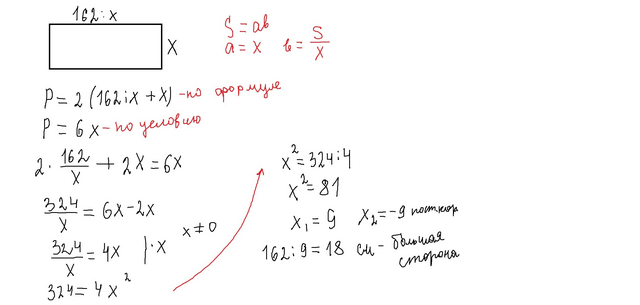 162 : x
x
S = ab
a = x в = S/x
P = 2 (162 : x + x) - по формуле
P = 6x - по условию
2 · 162/x + 2x = 6x
324/x = 6x - 2x
324/x = 4x | · x x ≠ 0
324 = 4x²
x² = 324 : 4
x² = 81
x₁ = 9 x₂ = -9
162 : 9 = 18 см - большая
сторона